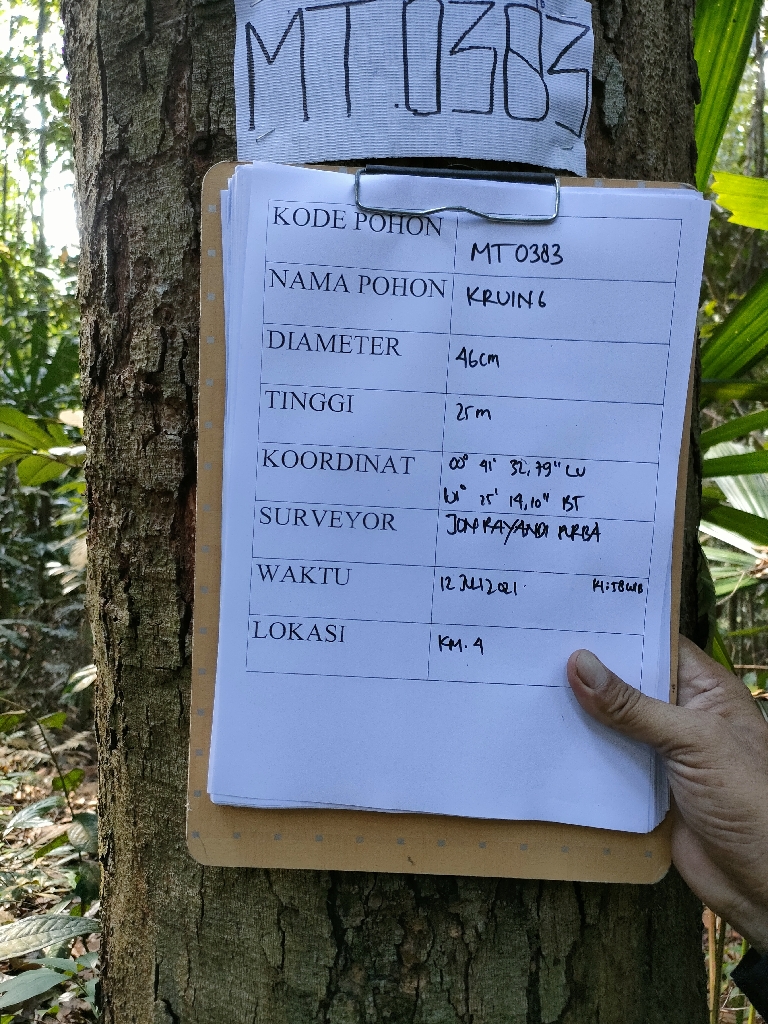 MT.0383
KODE POHON MT0383
NAMA POHON KRUING
DIAMETER 46cm
TINGGI 25m
KOORDINAT 00° 41' 32,79" LU
25' 19,10" BT
SURVEYOR
WAKTU 12 JULI 2021 14:58 WIB
LOKASI KM. 4